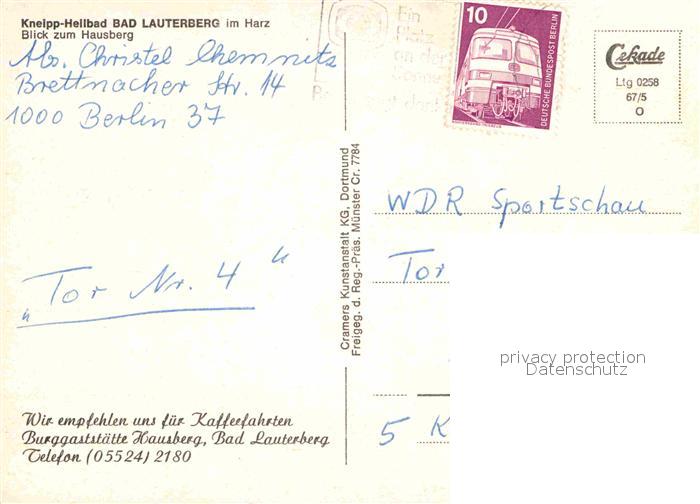 Kneipp-Heilbad BAD LAUTERBERG im Harz
Blick zum Hausberg
Abs. Christel Chemnitz
Brettnacher Str. 14
1000 Berlin 37
„Tor Nr. 4"
Wir empfehlen uns für Kaffeefahrten
Burggaststätte Hausberg, Bad Lauterberg
Telefon (05524) 2180
Cramers Kunstanstalt KG, Dortmund
Freigeg. d. Reg.-Präs. Münster Cr. 7784
Ein
Platz
an der
10
DEUTSCHE BUNDESPOST BERLIN
Cekade
Ltg 0258
67/5
O
WDR Sportschau
Tor
5 K
privacy protection
Datenschutz